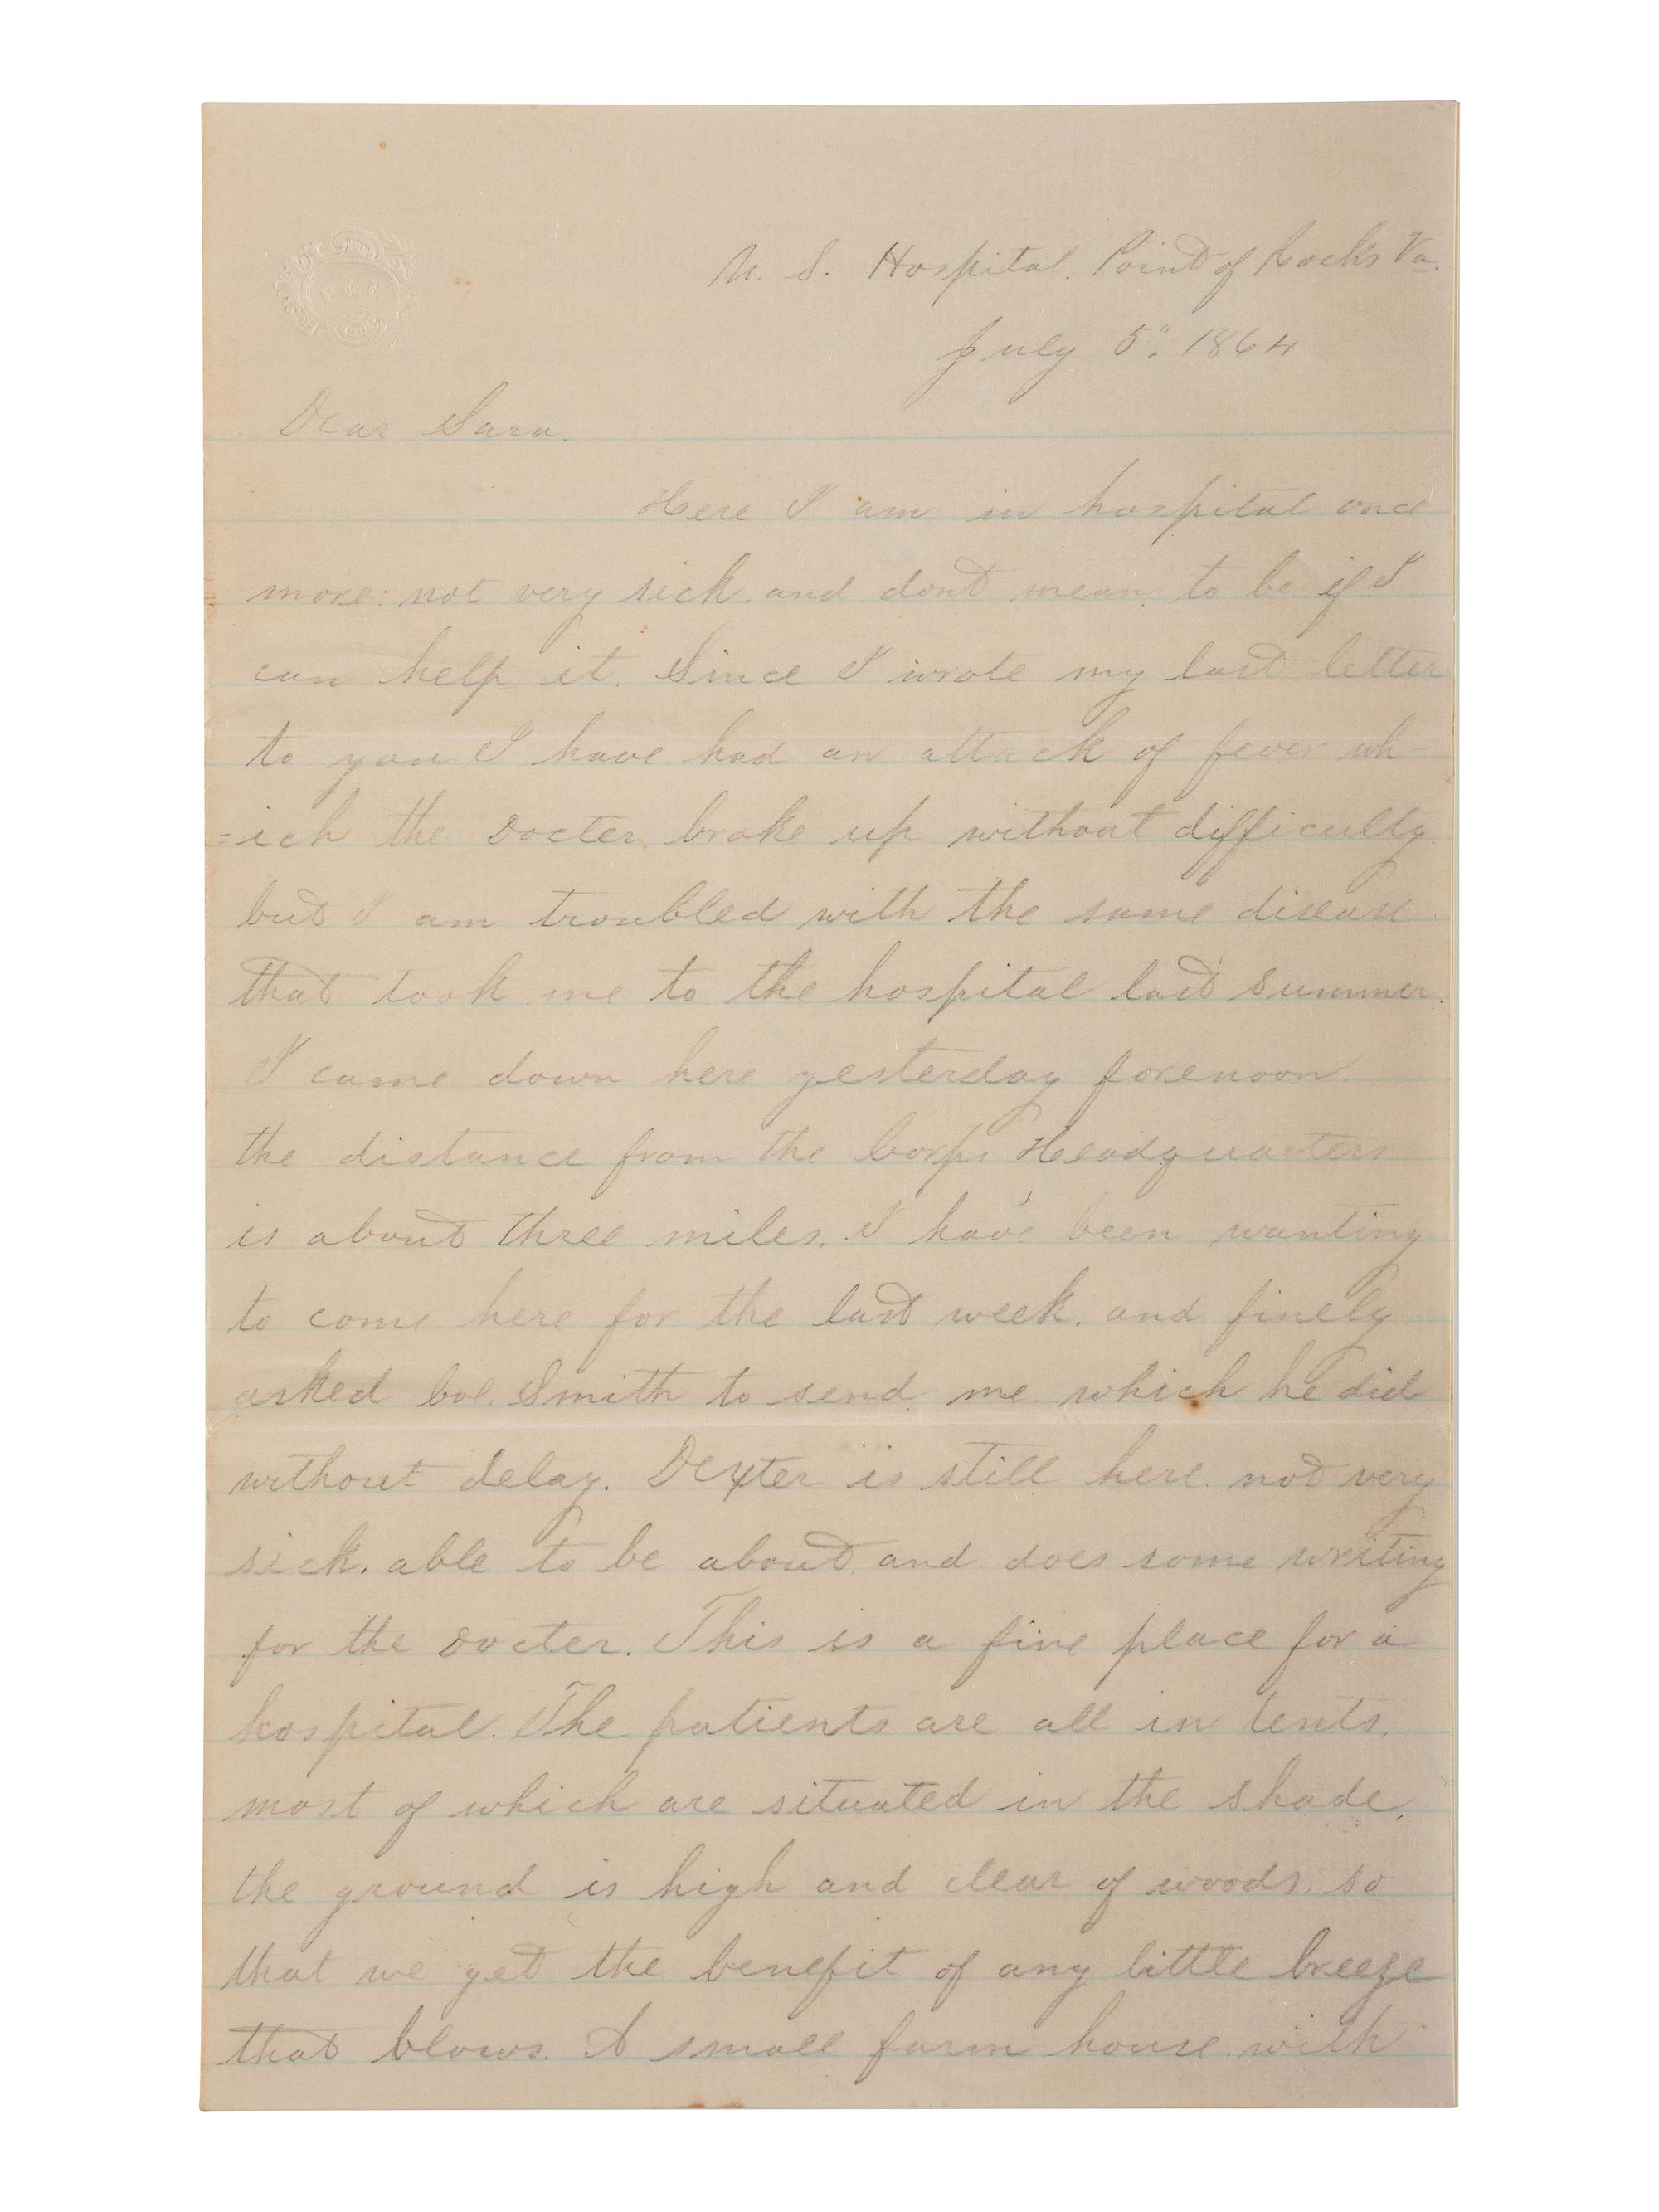 U. S. Hospital. Point of Rocks Va.
July 5". 1864
Dear Sara.
Here I am in hospital once
more: not very sick. and dont mean to be if I
can help it. Since I wrote my last letter
to you I have had an attack of fever wh
=ich the Docter broke up without difficulty
but I am troubled with the same disease
that took me to the hospital last summer.
I came down here yesterday forenoon.
the distance from the Corps Headquarters
is about three miles. I have been wanting
to come here for the last week. and finely
asked Col. Smith to send me. which he did
without delay. Dexter is still here. not very
sick. able to be about. and does some writing
for the Docter. This is a fine place for a
hospital. The patients are all in tents.
most of which are situated in the shade.
the ground is high and clear of woods. so
that we get the benefit of any little breeze
that blows. A small farm house. with